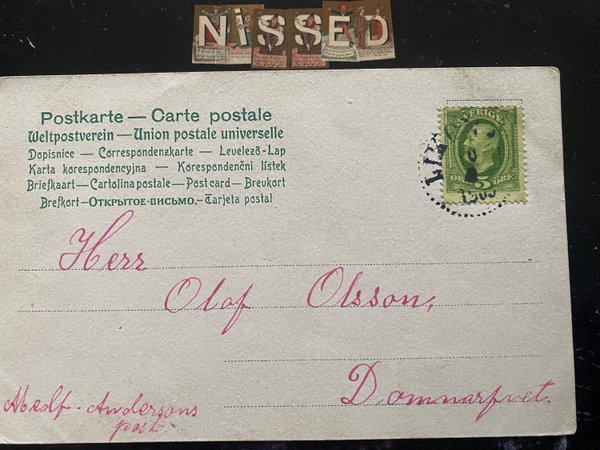 NiSSED
Postkarte — Carte postale
Weltpostverein — Union postale universelle
Dopisnice — Correspondenzkarte — Levelező-Lap
Karta korespondencyjna — Korespondenční lístek
Briefkaart — Cartolina postale — Post card — Brevkort
Brefkort — Открытое письмо. — Tarjeta postal
SVERIGE
5 ÖRE
Herr
Olof Olsson,
Domnarfvet.
Andersons
post.